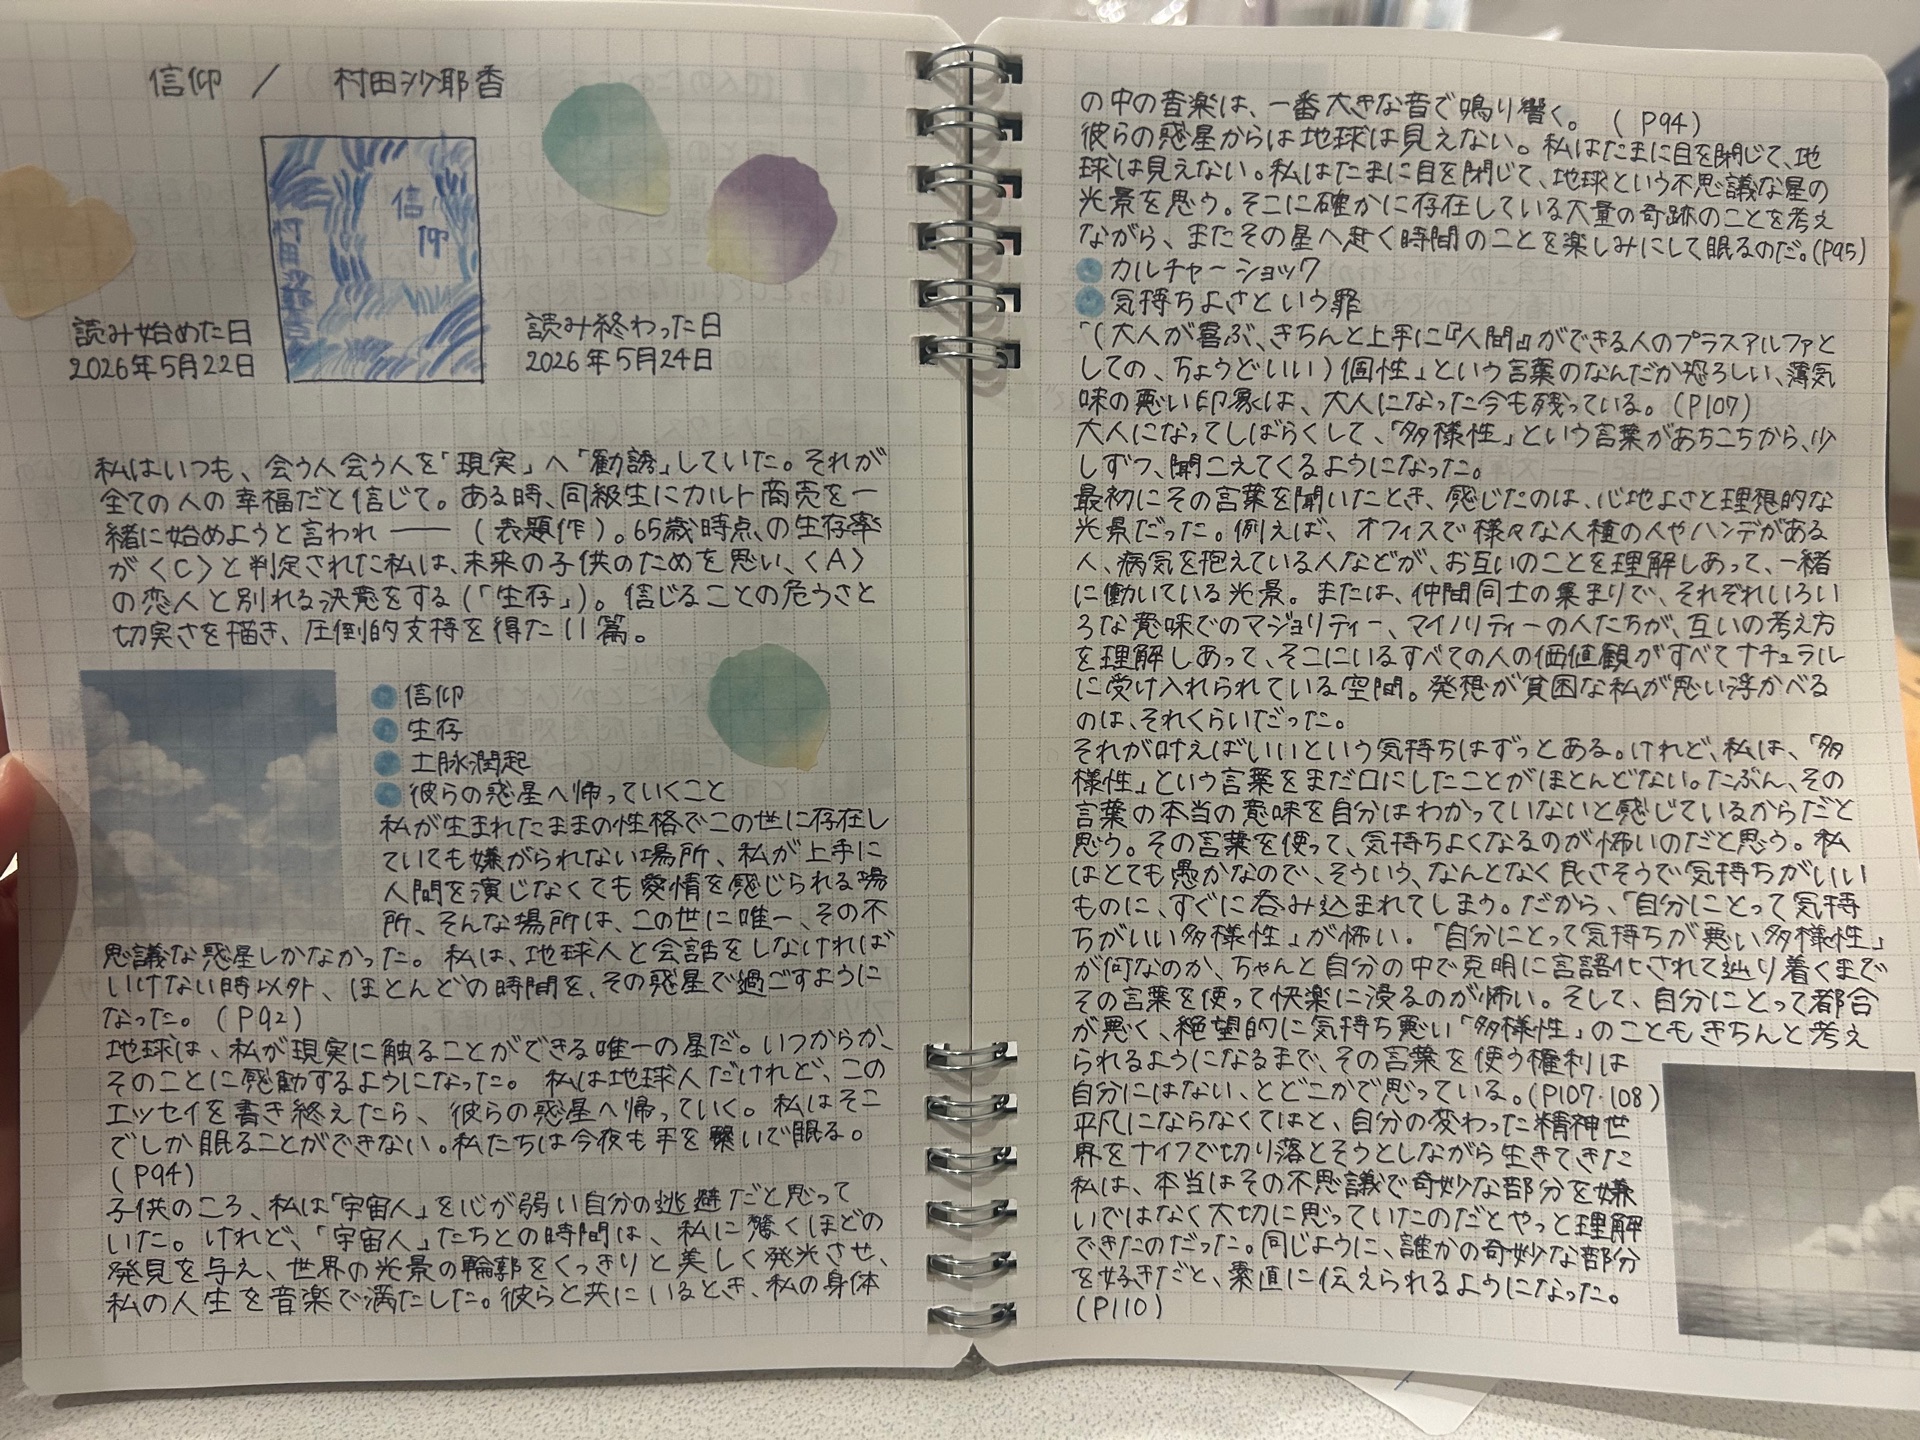 信仰 / 村田沙耶香
信仰
村田沙耶香
読み始めた日
2026年5月22日
読み終わった日
2026年5月24日
私はいつも、会う人会う人を「現実」へ「勧誘」していた。それが
全ての人の幸福だと信じて。ある時、同級生にカルト商売を一
緒に始めようと言われ――(表題作)。65歳時点の生存率
が〈C〉と判定された私は、未来の子供のためを思い、〈A〉
の恋人と別れる決意をする(「生存」)。信じることの危うさと
切実さを描き、圧倒的支持を得た11篇。
信仰
生存
土脉潤起
彼らの惑星へ帰っていくこと
私が生まれたままの性格でこの世に存在し
ていても嫌がられない場所、私が上手に
人間を演じなくても愛情を感じられる場
所、そんな場所は、この世に唯一、その不
思議な惑星しかなかった。私は、地球人と会話をしなければ
いけない時以外、ほとんどの時間を、その惑星で過ごすように
なった。(P92)
地球は、私が現実に触ることができる唯一の星だ。いつからか、
そのことに感動するようになった。私は地球人だけれど、この
エッセイを書き終えたら、彼らの惑星へ帰っていく。私はそこ
でしか眠ることができない。私たちは今夜も手を繋いで眠る。
(P94)
子供のころ、私は「宇宙人」を心が弱い自分の逃避だと思って
いた。けれど、「宇宙人」たちとの時間は、私に驚くほどの
発見を与え、世界の光景の輪郭をくっきりと美しく発光させ、
私の人生を音楽で満たした。彼らと共にいるとき、私の身体
の中の音楽は、一番大きな音で鳴り響く。(P94)
彼らの惑星からは地球は見えない。私はたまに目を閉じて、地
球は見えない。私はたまに目を閉じて、地球という不思議な星の
光景を思う。そこに確かに存在している大量の奇跡のことを考え
ながら、またその星へ赴く時間のことを楽しみにして眠るのだ。(P95)
カルチャーショック
気持ちよさという罪
「(大人が喜ぶ、きちんと上手に『人間』ができる人のプラスアルファと
しての、ちょうどいい)個性」という言葉のなんだか恐ろしい、薄気
味の悪い印象は、大人になった今も残っている。(P107)
大人になってしばらくして、「多様性」という言葉があちこちから、少
しずつ、聞こえてくるようになった。
最初にその言葉を聞いたとき、感じたのは、心地よさと理想的な
光景だった。例えば、オフィスで様々な人種の人やハンデがある
人、病気を抱えている人などが、お互いのことを理解しあって、一緒
に働いている光景。または、仲間同士の集まりで、それぞれいろい
ろな意味でのマジョリティー、マイノリティーの人たちが、互いの考え方
を理解しあって、そこにいるすべての人の価値観がすべてナチュラル
に受け入れられている空間。発想が貧困な私が思い浮かべる
のは、それくらいだった。
それが叶えばいいという気持ちはずっとある。けれど、私は、「多
様性」という言葉をまだ口にしたことがほとんどない。たぶん、その
言葉の本当の意味を自分はわかっていないと感じているからだと
思う。その言葉を使って、気持ちよくなるのが怖いのだと思う。私
はとても愚かなので、そういう、なんとなく良さそうで気持ちがいい
ものに、すぐに呑み込まれてしまう。だから、「自分にとって気持
ちがいい多様性」が怖い。「自分にとって気持ちが悪い多様性」
が何なのか、ちゃんと自分の中で克明に言語化されて辿り着くまで
その言葉を使って快楽に浸るのが怖い。そして、自分にとって都合
が悪く、絶望的に気持ち悪い「多様性」のこともきちんと考え
られるようになるまで、その言葉を使う権利は
自分にはない、とどこかで思っている。(P107・108)
平凡にならなくてはと、自分の変わった精神世
界をナイフで切り落とそうとしながら生きてきた
私は、本当はその不思議で奇妙な部分を嫌
いではなく大切に思っていたのだとやっと理解
できたのだった。同じように、誰かの奇妙な部分
を好きだと、素直に伝えられるようになった。
(P110)